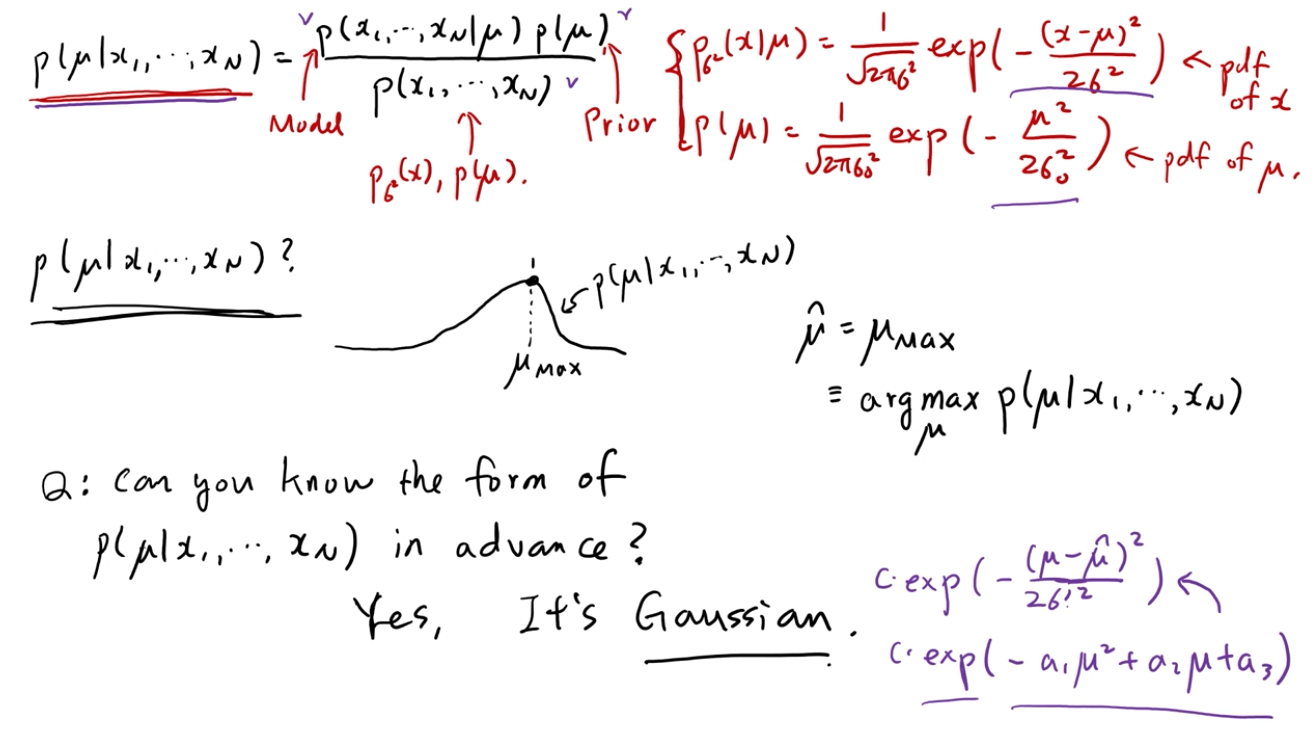 p(μ|x₁,⋯,x_N) = p(x₁,⋯,x_N|μ) p(μ) / p(x₁,⋯,x_N)
Model
Prior
p_{σ²}(x), p(μ).
{ p_{σ²}(x|μ) = 1/√(2πσ²) exp(-(x-μ)²/2σ²) ← pdf of x
p(μ) = 1/√(2πσ₀²) exp(-μ²/2σ₀²) ← pdf of μ.
p(μ|x₁,⋯,x_N)?
p(μ|x₁,⋯,x_N)
μ_Max
μ̂ = μ_Max
≡ argmax_μ p(μ|x₁,⋯,x_N)
Q: Can you know the form of
p(μ|x₁,⋯,x_N) in advance?
Yes, It's Gaussian.
C·exp(-(μ-μ̂)²/2σ'²)
C·exp(-a₁μ²+a₂μ+a₃)